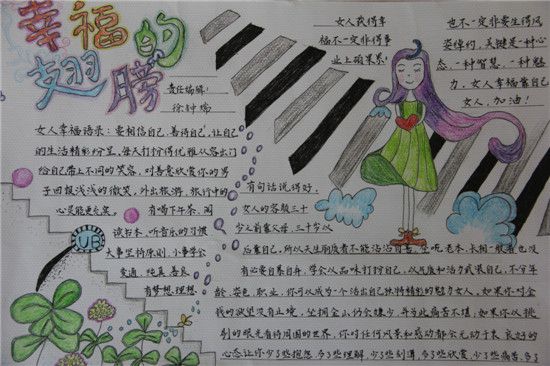 幸福的
翅膀
责任编辑:
徐钟瑞
女人获得幸
福不一定非得事
业上硕果累累!
也不一定非要生得风
姿绰约,关键是一种心
态,一种智慧,一种魅
力,女人幸福靠自己
女人,加油!
女人幸福语录:要相信自己,善待自己,让自
己的生活精彩纷呈,每天打扮得优雅从容出门
给自己带上不同的笑容,对喜爱欣赏你的男
子回报浅浅的微笑,外出旅游,旅行中的
心灵能更充实。有喝下午茶、阅
读书本、听音乐的习惯
大事坚持原则,小事学会
变通,纯真 善良
有梦想 理想。
VB
有句话说得好,
女人的容貌三十
岁以前靠父母,三十岁以
后靠自己,所以天生丽质者不能沾沾自喜,坐吃老本,长相一般者也没
有必要自暴自弃,学会从品味打扮自己,以风度和活力武装自己,不分年
龄、姿色、职业,你可以成为一个活出自己独特精彩的魅力女人,如果你对金
钱的欲望没有止境,坐拥金山仍会嫌少,并为此痛苦不堪,如果你以挑
剔的眼光看待周围的世界,你对任何风景和感动都会无动于衷,良好的
心态让你少了些抱怨,多了些理解,少了些刻薄,多了些欣赏,少了些痛苦,多了